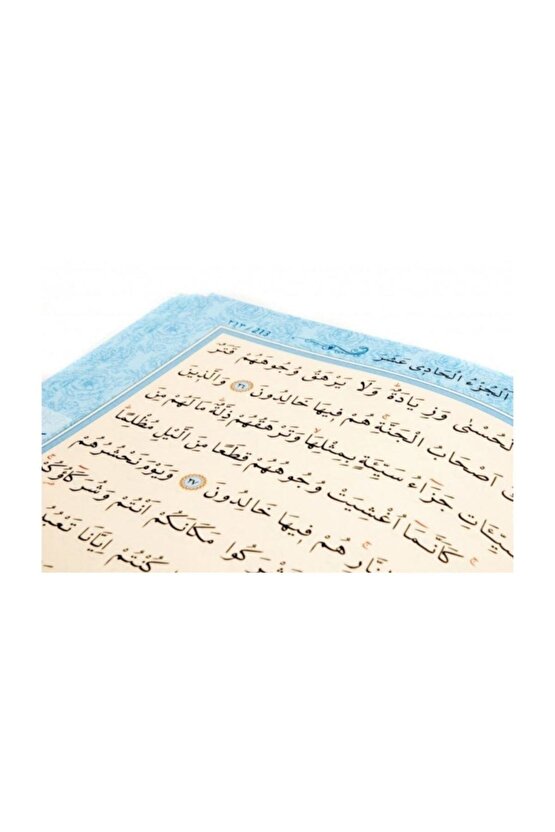 الجُزْءُ الْحَادِى عَشَرَ
٢١٢ / 213
الْحُسْنٰى وَزِيَادَةٌ وَلَا يَرْهَقُ وُجُوهَهُمْ قَتَرٌ
اَصْحَابُ الْجَنَّةِ هُمْ فٖيهَا خَالِدُونَ ٢٦ وَالَّذٖينَ
جَزَٓاءُ سَيِّئَةٍ بِمِثْلِهَا وَتَرْهَقُهُمْ ذِلَّةٌ مَا لَهُمْ مِنَ
كَاَنَّمَٓا اُغْشِيَتْ وُجُوهُهُمْ قِطَعًا مِنَ الَّيْلِ مُظْلِمًا
النَّارِ هُمْ فٖيهَا خَالِدُونَ ٢٧ وَيَوْمَ نَحْشُرُهُمْ
مَكَانَكُمْ اَنْتُمْ وَشُرَكَٓاؤُ۬كُمْ
كُنْتُمْ اِيَّانَا تَعْبُدُونَ